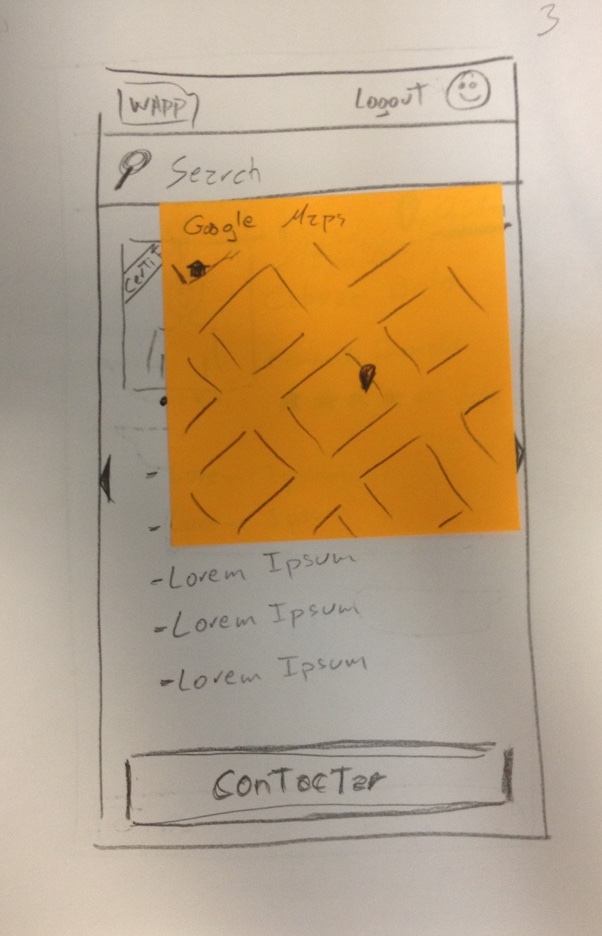 3
WAPP
Logout
Search
Google Maps
Certif
-Lorem Ipsum
-Lorem Ipsum
-Lorem Ipsum
Contactar